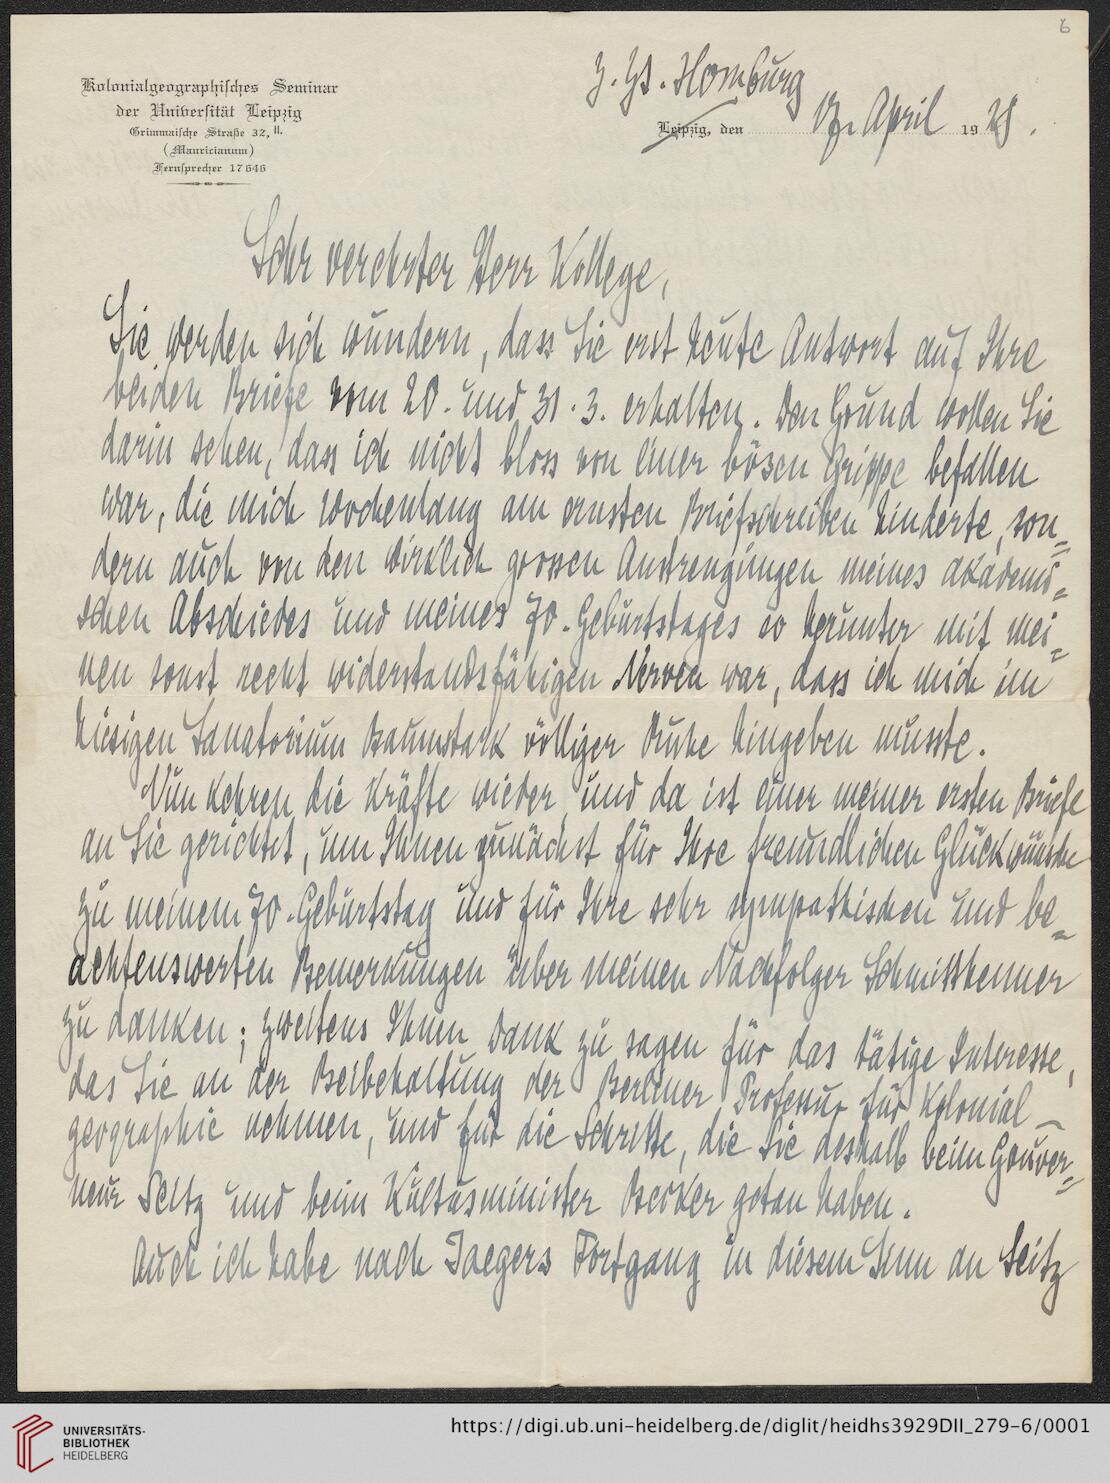 6
Kolonialgeographisches Seminar
der Universität Leipzig
Grimmaische Straße 32, II.
(Mauricianum)
Fernsprecher 17646
z. Zt. Homburg
Leipzig, den 17. April 1928.
Sehr verehrter Herr Kollege,
Sie werden sich wundern, dass Sie erst heute Antwort auf Ihre
beiden Briefe vom 20. und 31. 3. erhalten. Den Grund wollen Sie
darin sehen, dass ich nicht bloss von einer bösen Grippe befallen
war, die mich wochenlang am ernsten Briefschreiben hinderte, son=
dern auch von den wirklich grossen Anstrengungen meines akademi=
schen Abschiedes und meines 70. Geburtstages so herunter mit mei=
nen sonst recht widerstandsfähigen Nerven war, dass ich mich im
hiesigen Sanatorium Baumstark völliger Ruhe hingeben musste.
Nun kehren die Kräfte wieder, und da ist einer meiner ersten Briefe
an Sie gerichtet, um Ihnen zunächst für Ihre freundlichen Glückwünsche
zu meinem 70. Geburtstag und für Ihre sehr sympathischen und be=
achtenswerten Bemerkungen über meinen Nachfolger Schmitthenner
zu danken; zweitens Ihnen Dank zu sagen für das tätige Interesse,
das Sie an der Beibehaltung der Berliner Professur für Kolonial-
geographie nehmen, und für die Schritte, die Sie deshalb beim Gouver=
neur Seitz und beim Kultusminister Becker getan haben.
Auch ich habe nach Jaegers Fortgang in diesem Sinn an Seitz
UNIVERSITÄTS-
BIBLIOTHEK
HEIDELBERG
https://digi.ub.uni-heidelberg.de/diglit/heidhs3929DII_279-6/0001